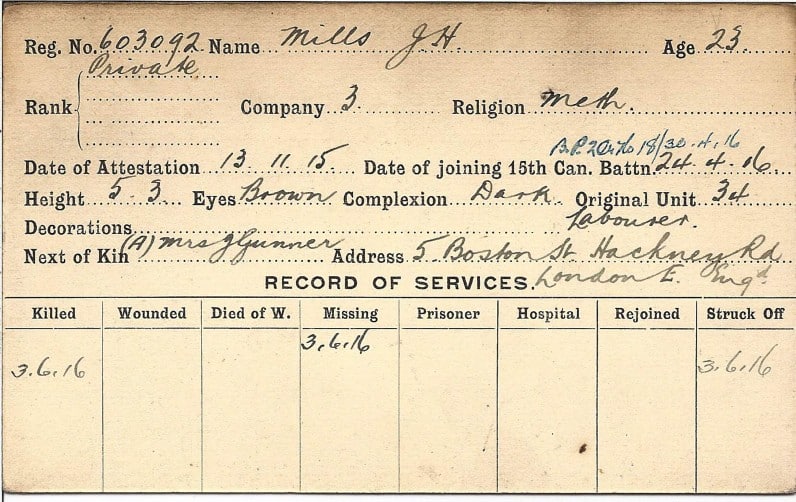 Reg. No. 603092 Name Mills J.H. Age 23
Private
Rank Company 3 Religion Meth.
B.P. 2 18/30.4.16
Date of Attestation 13 11 15 Date of joining 15th Can. Battn. 24-4-16
Height 5 3 Eyes Brown Complexion Dark Original Unit 34
Decorations Labourer.
Next of Kin (A) Mrs J Gunner Address 5 Boston St. Hackney Rd
RECORD OF SERVICES. London E. Eng'd.
Killed Wounded Died of W. Missing Prisoner Hospital Rejoined Struck Off
3.6.16
3.6.16 3.6.16